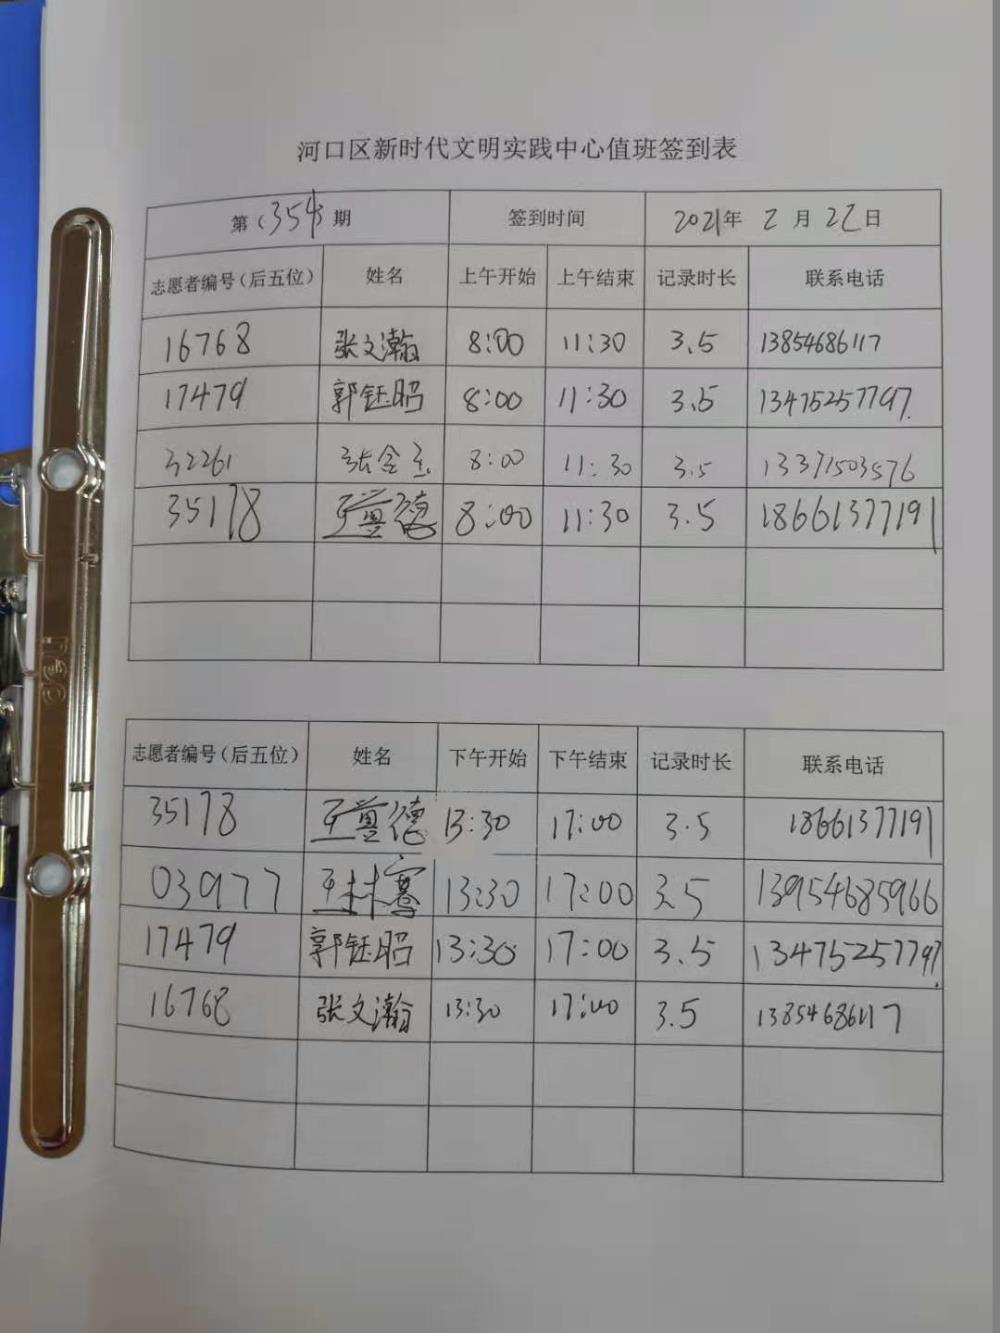 河口区新时代文明实践中心值班签到表
第（354）期 签到时间 2021年 2月 22日
志愿者编号（后五位） 姓名 上午开始 上午结束 记录时长 联系电话
16768 张文瀚 8:00 11:30 3.5 13854686117
17479 郭钰昭 8:00 11:30 3.5 13475257797
32261 张会 8:00 11:30 3.5 13371503576
35178 王道德 8:00 11:30 3.5 18661377191
志愿者编号（后五位） 姓名 下午开始 下午结束 记录时长 联系电话
35178 王道德 13:30 17:00 3.5 18661377191
03977 王林骞 13:30 17:00 3.5 13954685966
17479 郭钰昭 13:30 17:00 3.5 13475257797
16768 张文瀚 13:30 17:00 3.5 13854686117
deli